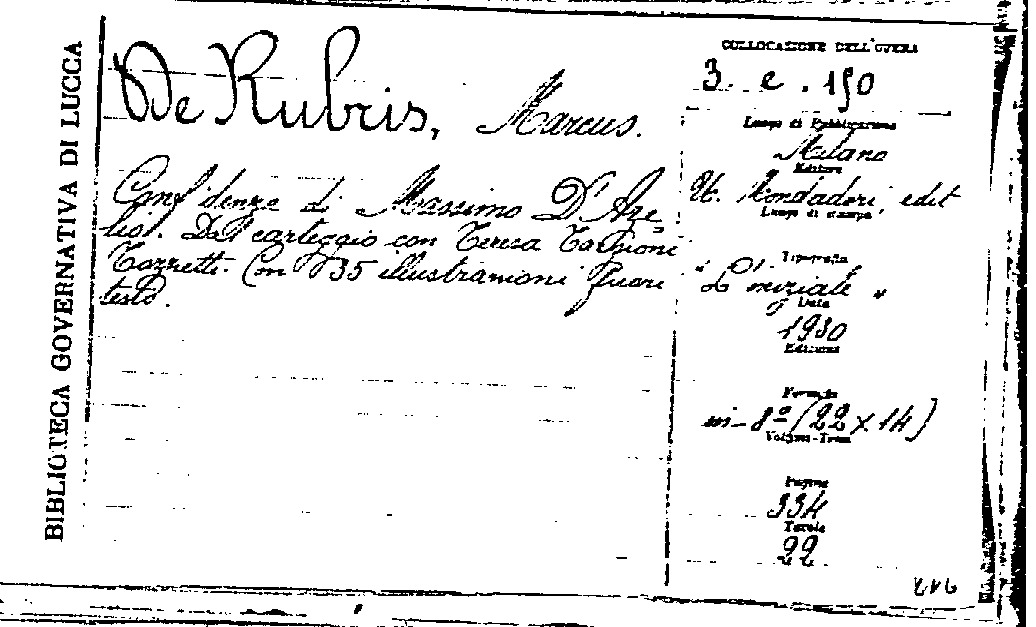 BIBLIOTECA GOVERNATIVA DI LUCCA
De Rubris, Marcus.
Confidenze di Massimo D'Aze=
lio. Dal carteggio con Teresa Targioni
Tozzetti. Con 35 illustrazioni fuori
testo.
COLLOCAZIONE DELL'OPERA
3. e. 150
Luogo di Pubblicazione
Milano
Editore
A. Mondadori edit
Luogo di stampa
Tipografia
"L'iniziale"
Data
1930
Edizione
Formato
in-8º (22 x 14)
Volumi-Tomi
Pagine
334
Tavole
22